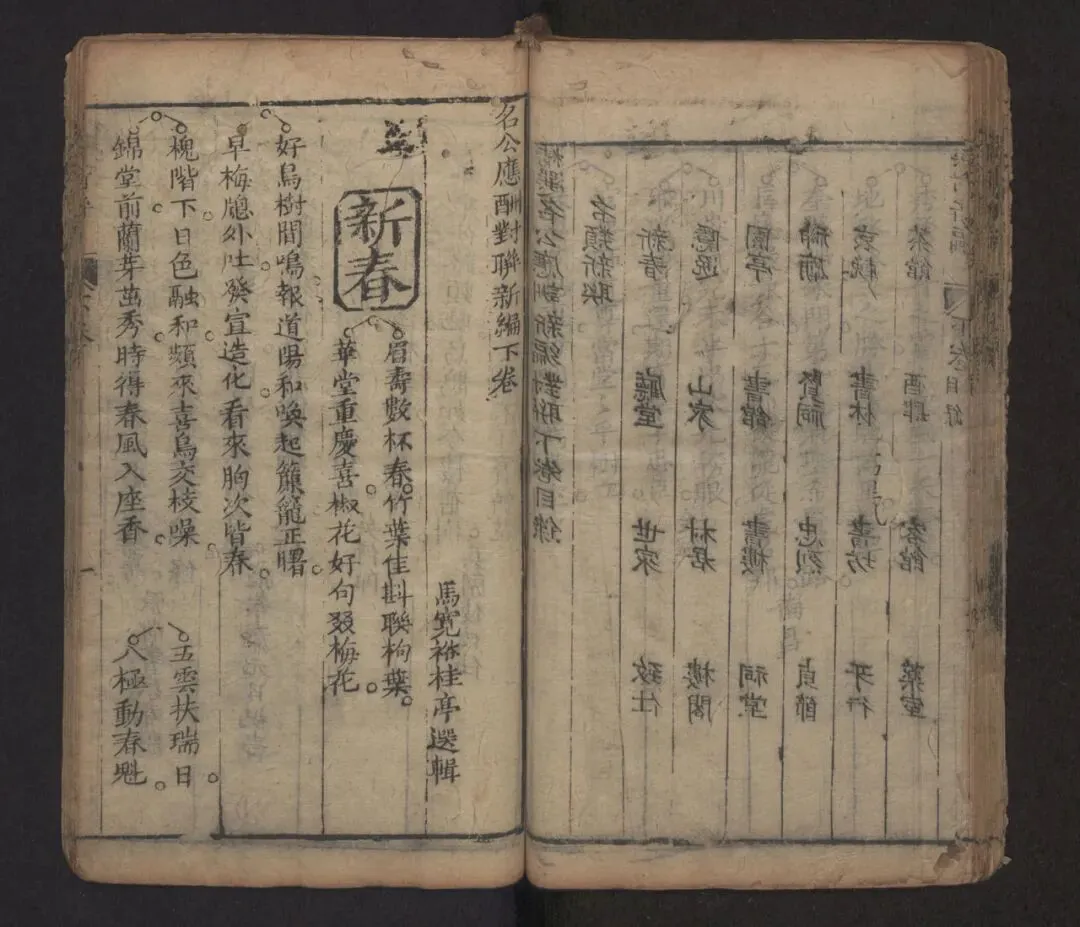 精選名公應酬新編對聯下卷目錄
各類新聯
新春 廳堂 世家 致仕
隱逸 山家 村居 樓閣
園亭 書館 書樓 祠堂
神廟 賢祠 忠烈 貞節
書林 書坊 牙行
茶館 酒肆 客館 藥室
下卷目錄
名公應酬對聯新編下卷
馬寬裕桂亭選輯
新春
眉壽數杯春竹葉佳斟聯枸葉
華堂重慶喜椒花好句叕梅花
好鳥樹間鳴報道陽和喚起簾籠正曙
早梅牕外吐發宣造化看來胸次皆春
槐階下日色融和頻來喜鳥交枝噪 五雲扶瑞日
錦堂前蘭芽茁秀時得春風入座香 八極動春魁
一